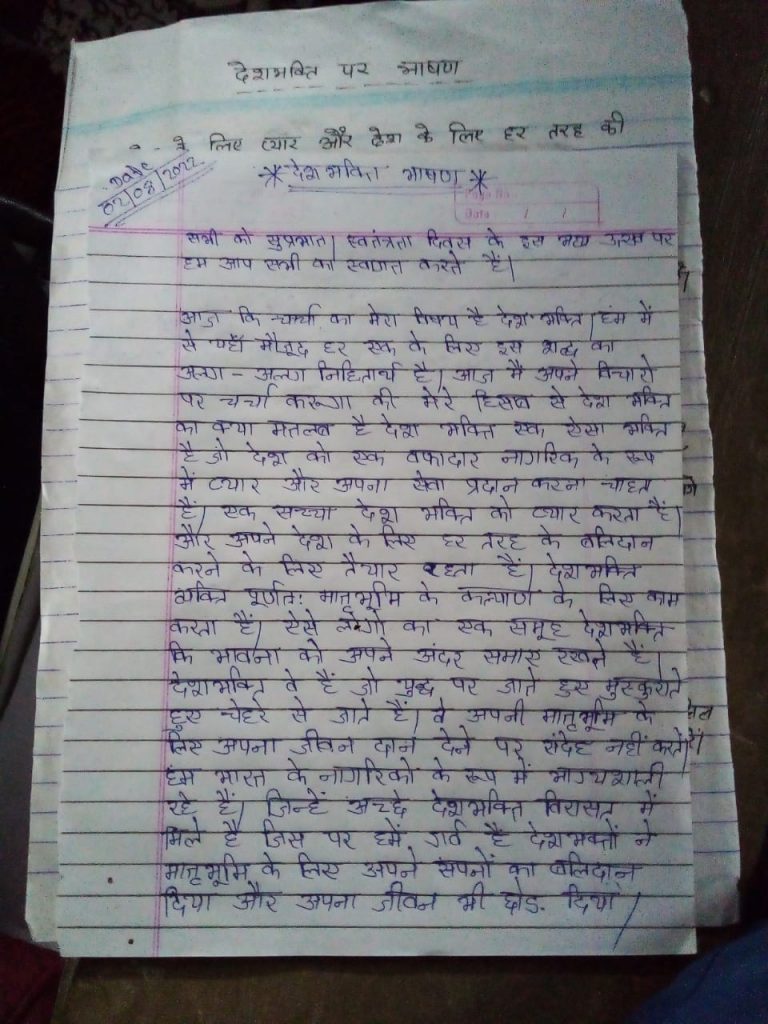 देशभक्ति पर भाषण
लिए प्यार और देश के लिए हर तरह की
Date
02/08/2022
* देश भक्ति भाषण *
Page No
Date / /
सभी को सुप्रभात। स्वतंत्रता दिवस के इस भव्य उत्सव पर
हम आप सभी का स्वागत करते हैं।
आज कि चर्चा का मेरा विषय है देश भक्ति। हंम में
से यहाँ मौजूद हर एक के लिए इस शब्द का
अलग - अलग निहितार्थ है। आज मैं अपने विचारो
पर चर्चा करूगा की मेरे हिसाब से देश भक्ति
का क्या मतलब है देश भक्ति एक ऐसा भक्ति
है जो देश को एक वफादार नागरिक के रूप
में प्यार और अपना सेवा प्रदान करना चाहता
हैं। एक सच्चा देश भक्ति को प्यार करता है।
और अपने देश के लिए हर तरह के बलिदान
करने के लिए तैयार रहता हैं। देशभक्ति
व्यक्ति पूर्णतः मातृभूमि के कल्याण के लिए काम
करता हैं। ऐसे लोगो का एक समूह देशभक्ति
कि भावना को अपने अंदर समाए रखते हैं।
देशभक्ति वे हैं जो युद्ध पर जाते हुए मुस्कुराते
हुए चेहरे से जाते हैं। वे अपनी मातृभूमि के
लिए अपना जीवन दान देने पर संदेह नहीं करते।
हंम भारत के नागरिकों के रूप में भाग्यशाली
रहे हैं। जिन्हें अच्छे देशभक्ति विरासत में
मिले है जिस पर हमें गर्व है देशभक्तों ने
मातृभूमि के लिए अपने सपनों का बलिदान
दिया और अपना जीवन भी छोड़ दिया।